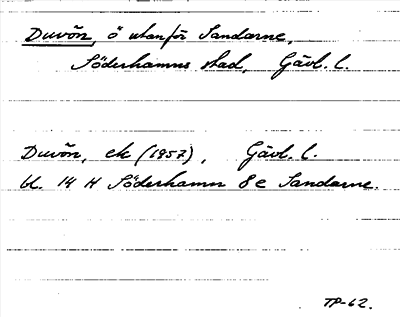 Duvön, ö utanför Sandarne,
Söderhamns stad, Gävl. l.
Duvön, ek (1957), Gävl. l.
bl. 14 H Söderhamn 8e Sandarne.
TP-62.